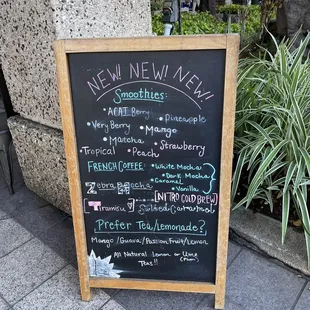 NEW! NEW! NEW!
Smoothies:
• Berry • Pineapple
• Very Berry • Mango
• Matcha • Strawberry
• Tropical • Peach
FRENCH COFFEE: • White Mocha
• Dark Mocha
• Caramel
• Vanilla
Zebra Mocha
Tiramisu Salted Caramel
(NITRO COLD BREW)
Prefer Tea/Lemonade?
Mango/Guava/Passion Fruit/Lemon
All Natural Lemon or Lime
Teas!!